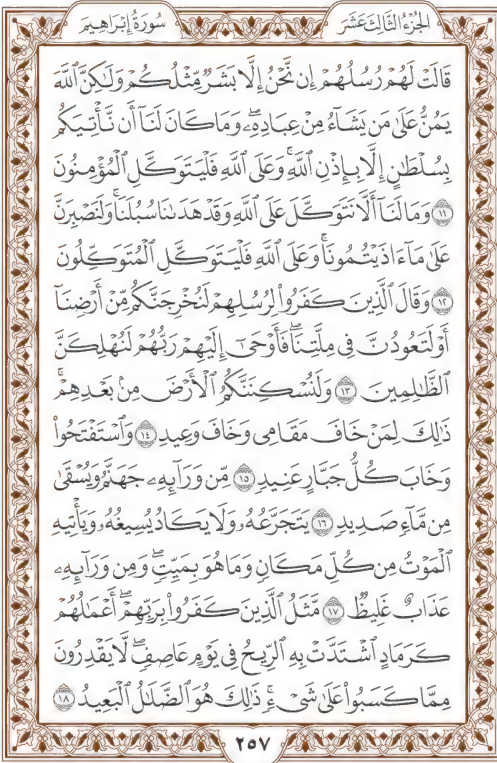 الجُزْءُ الثَّالِثَ عَشَرَ
سُورَةُ إِبْرَاهِيمَ
قَالَتْ لَهُمْ رُسُلُهُمْ إِن نَّحْنُ إِلَّا بَشَرٌ مِّثْلُكُمْ وَلَٰكِنَّ ٱللَّهَ
يَمُنُّ عَلَىٰ مَن يَشَآءُ مِنْ عِبَادِهِۦۖ وَمَا كَانَ لَنَآ أَن نَّأْتِيَكُم
بِسُلْطَٰنٍ إِلَّا بِإِذْنِ ٱللَّهِۚ وَعَلَى ٱللَّهِ فَلْيَتَوَكَّلِ ٱلْمُؤْمِنُونَ
١١ وَمَا لَنَآ أَلَّا نَتَوَكَّلَ عَلَى ٱللَّهِ وَقَدْ هَدَىٰنَا سُبُلَنَاۚ وَلَنَصْبِرَنَّ
عَلَىٰ مَآ ءَاذَيْتُمُونَاۚ وَعَلَى ٱللَّهِ فَلْيَتَوَكَّلِ ٱلْمُتَوَكِّلُونَ
١٢ وَقَالَ ٱلَّذِينَ كَفَرُواْ لِرُسُلِهِمْ لَنُخْرِجَنَّكُم مِّنْ أَرْضِنَآ
أَوْ لَتَعُودُنَّ فِى مِلَّتِنَاۖ فَأَوْحَىٰٓ إِلَيْهِمْ رَبُّهُمْ لَنُهْلِكَنَّ
ٱلظَّٰلِمِينَ ١٣ وَلَنُسْكِنَنَّكُمُ ٱلْأَرْضَ مِنۢ بَعْدِهِمْۚ
ذَٰلِكَ لِمَنْ خَافَ مَقَامِى وَخَافَ وَعِيدِ ١٤ وَٱسْتَفْتَحُواْ
وَخَابَ كُلُّ جَبَّارٍ عَنِيدٍ ١٥ مِّن وَرَآئِهِۦ جَهَنَّمُ وَيُسْقَىٰ
مِن مَّآءٍ صَدِيدٍ ١٦ يَتَجَرَّعُهُۥ وَلَا يَكَادُ يُسِيغُهُۥ وَيَأْتِيهِ
ٱلْمَوْتُ مِن كُلِّ مَكَانٍ وَمَا هُوَ بِمَيِّتٍۖ وَمِن وَرَآئِهِۦ
عَذَابٌ غَلِيظٌ ١٧ مَّثَلُ ٱلَّذِينَ كَفَرُواْ بِرَبِّهِمْۖ أَعْمَٰلُهُمْ
كَرَمَادٍ ٱشْتَدَّتْ بِهِ ٱلرِّيحُ فِى يَوْمٍ عَاصِفٍۖ لَّا يَقْدِرُونَ
مِمَّا كَسَبُواْ عَلَىٰ شَىْءٍۚ ذَٰلِكَ هُوَ ٱلضَّلَٰلُ ٱلْبَعِيدُ ١٨
٢٥٧